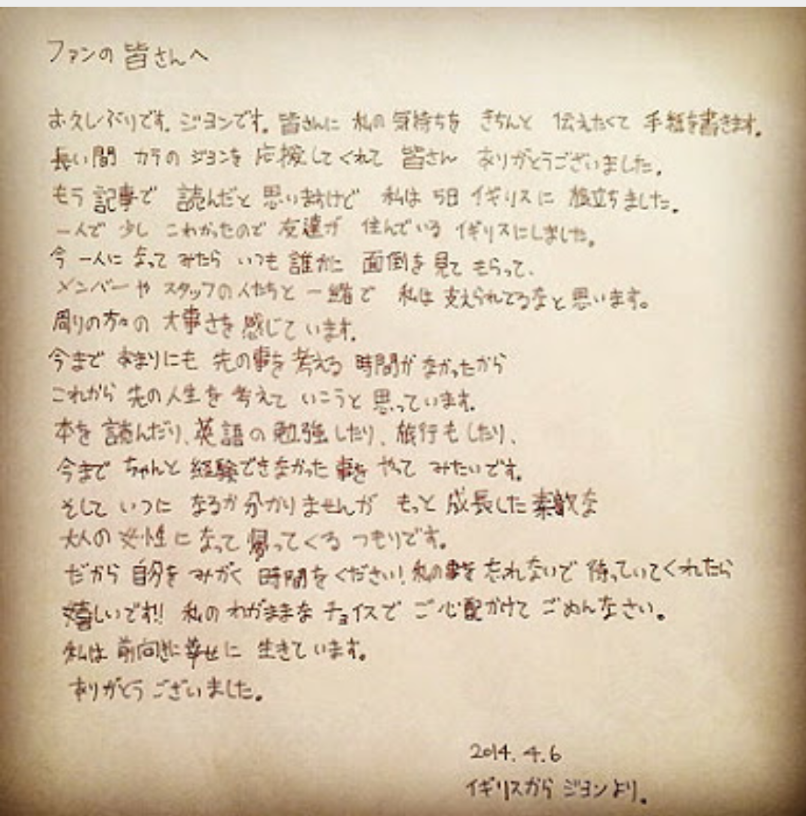 ファンの皆さんへ
お久しぶりです。ジヨンです。皆さんに 私の 気持ちを きちんと 伝えたくて 手紙を書きます。
長い間 カラの ジヨンを 応援してくれて 皆さん ありがとうございました。
もう 記事で 読んだと 思いますけど 私は 5日 イギリスに 旅立ちました。
一人で 少し こわかったので 友達が 住んでいる イギリスにしました。
今 一人に なって みたら いつも 誰かに 面倒を 見て もらって、
メンバーや スタッフの人たちと 一緒で 私は 支えられてるなと思います。
周りの方々の 大事さを 感じています。
今まで あまりにも 先の事を 考える 時間が なかったから
これから 先の人生を 考えて いこうと 思っています。
本を 読んだり、英語の 勉強したり、旅行もしたり、
今まで ちゃんと 経験できなかった 事を やって みたいです。
そして いつに なるか 分かりませんが もっと 成長した 素敵な
大人の 女性に なって 帰ってくる つもりです。
だから 自分を みがく 時間をください! 私の事を 忘れないで 待っていてくれたら
嬉しいです!! 私の わがままな チョイスで ご心配かけて ごめんなさい。
私は 前向きに 幸せに 生きています。
ありがとうございました。
2014. 4. 6
イギリスから ジヨンより。